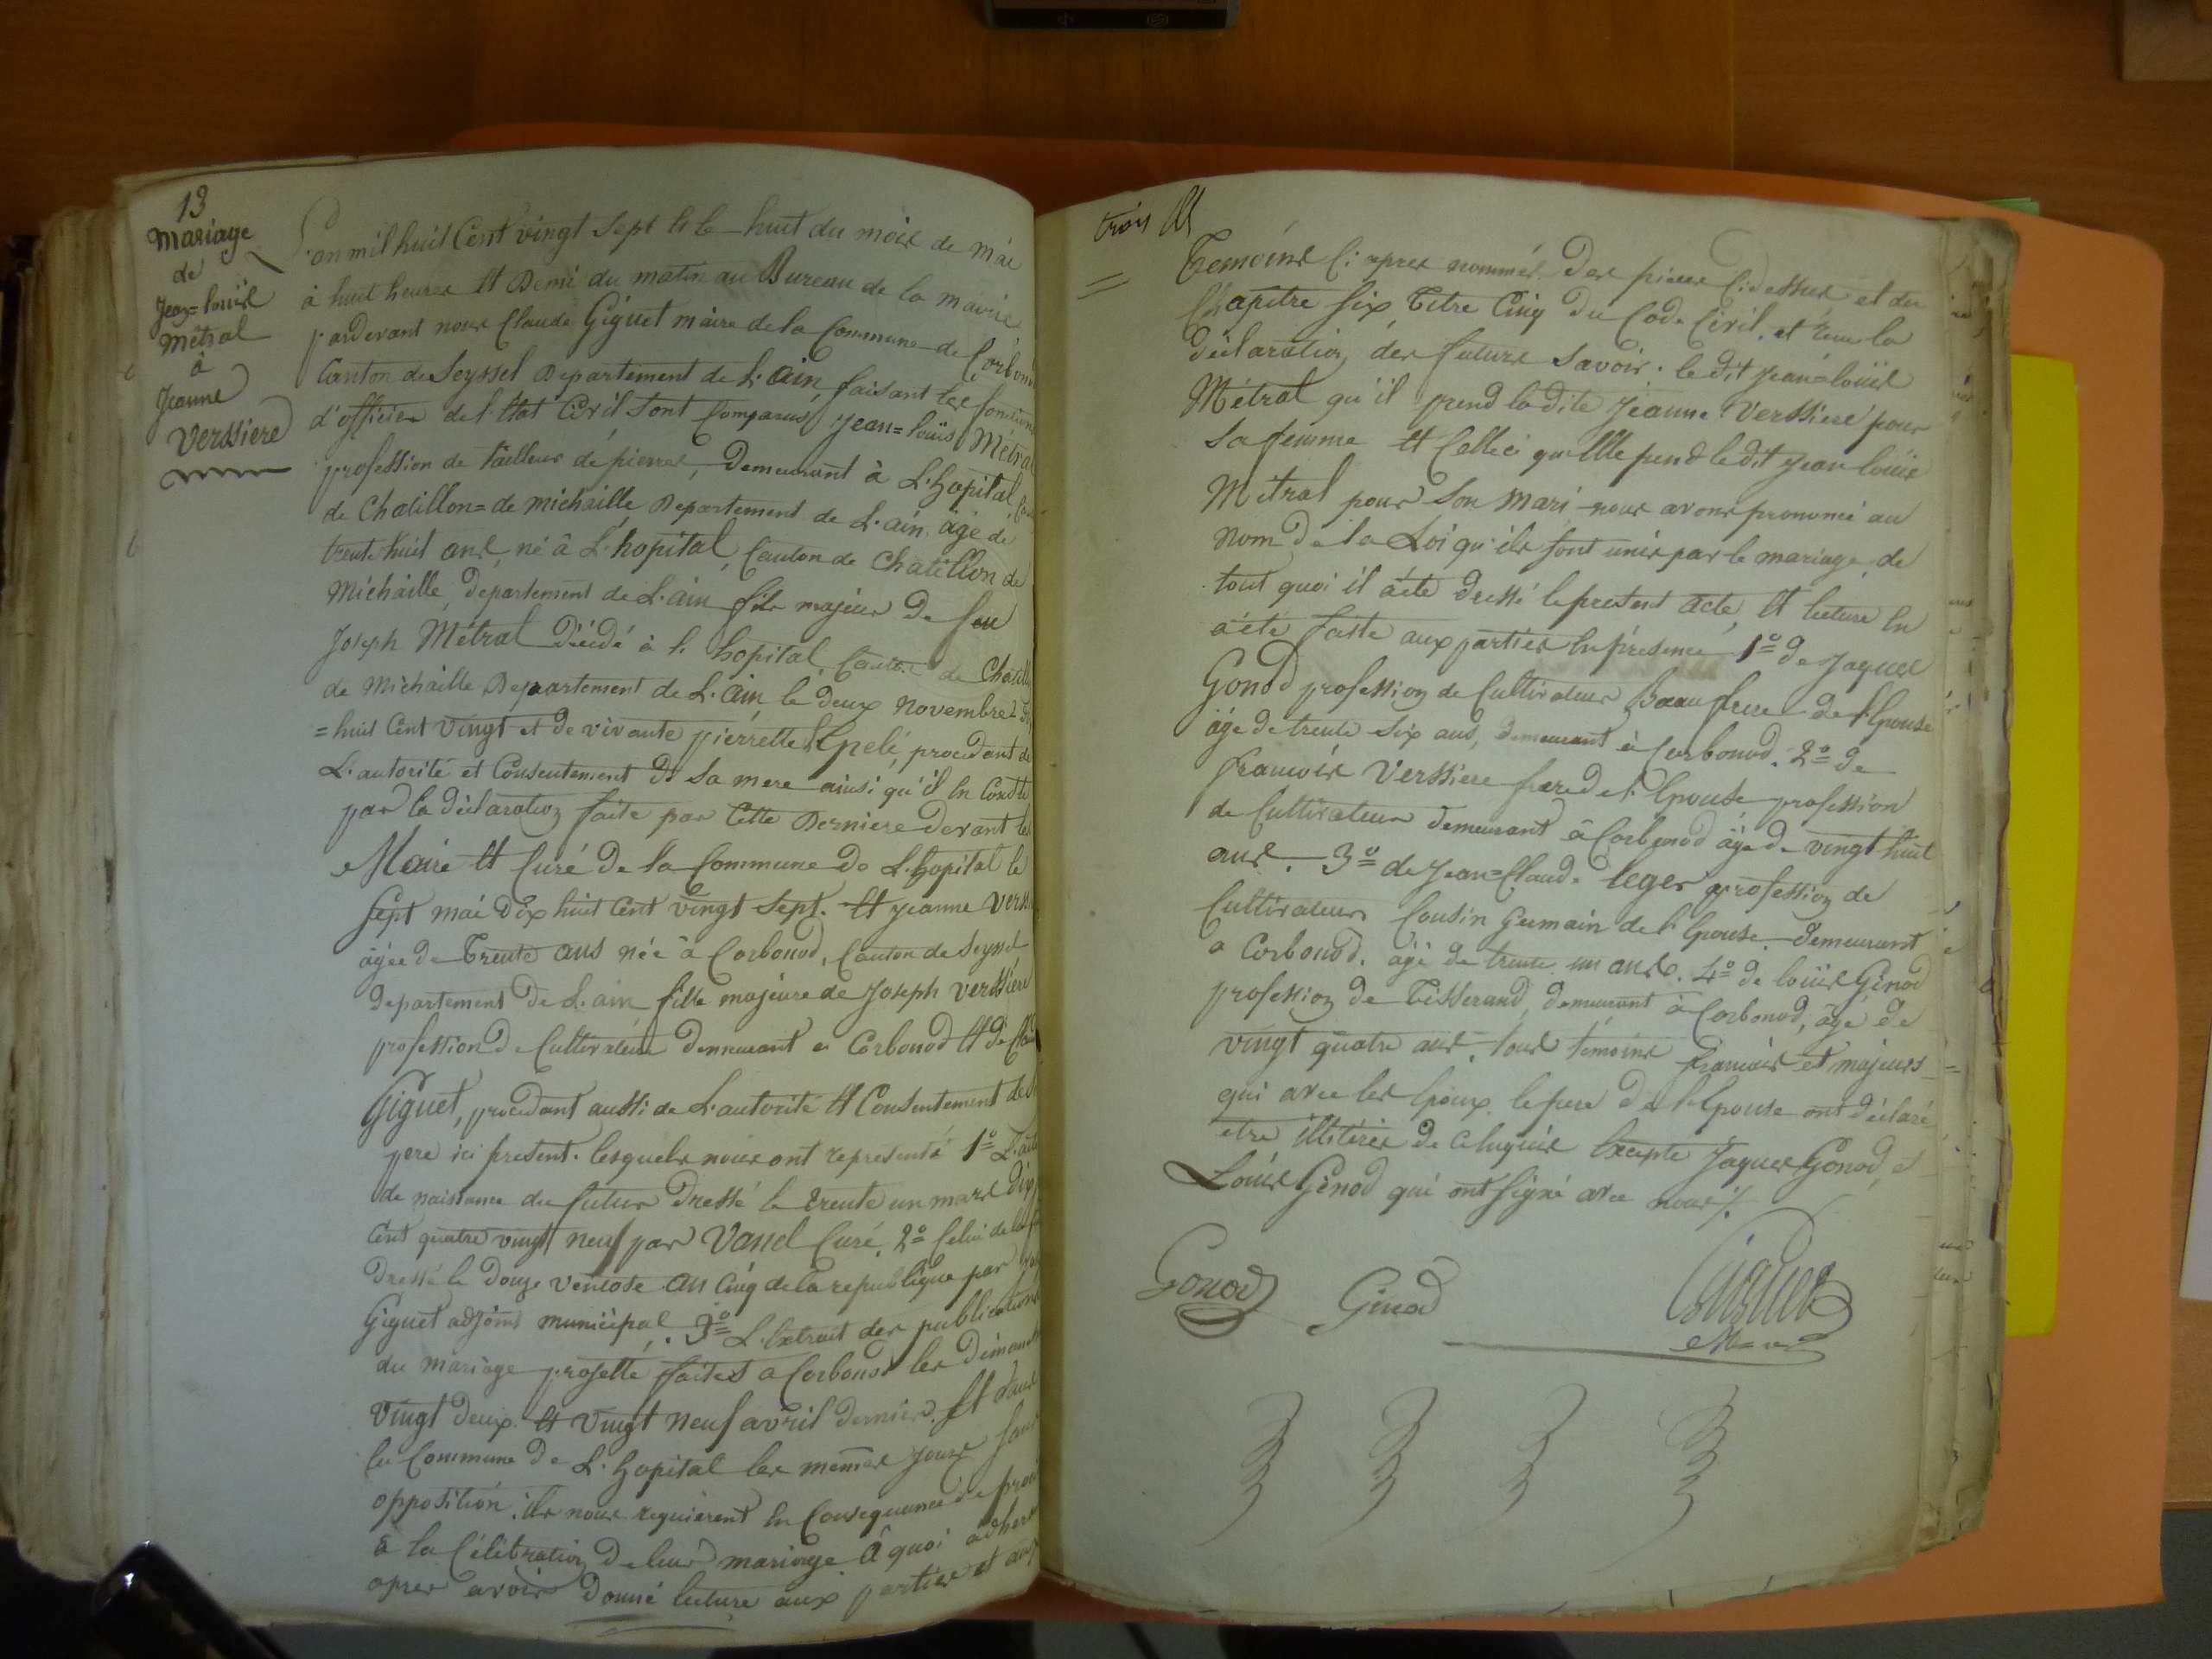 13
Mariage
de
Jean=louïs
Métral
à
Jeanne
Verssiere
L'an mil huit Cent vingt Sept et le huit du mois de mai
à huit heures et Demi du matin au Bureau de la mairie
pardevant nous Claude Giguet maire de la Commune de Corbonod
Canton de Seyssel Departement de L'ain, faisant les fonctions
d'officier de l'Etat Civil sont Comparus, Jean=louïs Métral
profession de tailleur de pierres, Demeurant à L'hopital,
de Chatillon=de michaille Departement de L'ain, agé de
trente huit ans, né à L'hopital, Canton de Chatillon de
Michaille, Departement de L'ain fils majeur de feu
Joseph Métral Décédé à l'hopital, Canton de Chatillon
de Michaille Departement de L'ain, le deux Novembre
=huit Cent Vingt et de vivante pierrette Epelé, procedant de
L'autorité et Consentement de Sa mere ainsi qu'il en Conste
par la déclaration faite par Cette Derniere devant le
Maire et Curé de la Commune de L'hopital le
Sept mai Dix huit Cent vingt Sept. Et Jeanne Verssiere
agée de Trente ans née à Corbonod, Canton de Seyssel
departement de L'ain fille majeure de Joseph Verssiere
profession de Cultivateur demeurant a Corbonod et de
Giguet, procedant aussi de L'autorité et Consentement de
pere ici present. lesquels nous ont representé 1º L'acte
de naissance du futur Dressé le trente un mars Dix
Cent quatre vingt neuf par Vanel Curé, 2º Celui de la
Dressé le Douze Ventose an Cinq de la republique par
Giguet adjoint municipal. 3º L'Extrait des publications
du mariage projetté faites a Corbonod les dimanches
Vingt deux et Vingt Neuf avril dernier. Et dans
la Commune de L'hopital les mêmes jours Sans
opposition. ils nous requierent en Consequence de
à la Célébration de leur mariage. A quoi adherant
apres avoir Donné lecture aux parties et aux
trois
Temoins Ci apres nommés des pieces Ci dessus et du
Chapitre Six Titre Cinq du Code Civil, et reçu la
déclaration des futurs Savoir. le dit Jean=louïs
Métral qu'il prend la dite Jeanne Verssiere pour
Sa femme Et Celleci qu'elle prend le dit Jean louïs
Métral pour Son Mari nous avons prononcé au
Nom de la Loi qu'ils sont unis par le mariage, de
tout quoi il a été dressé le present acte, Et lecture en
a été faite aux parties En présence 1º de Jaques
Gonod profession de Cultivateur Beau frere de l'Epouse
agé de trente Six ans, demeurant à Corbonod. 2º de
françois Verssiere frere de l'Epouse profession
de Cultivateur demeurant à Corbonod agé de vingt huit
ans. 3º de Jean=Claude leger profession de
Cultivateur Cousin Germain de l'Epouse, demeurant
a Corbonod. agé de trente un ans. 4º de louïs Génod
profession de Tisserand, demeurant à Corbonod, agé de
vingt quatre ans. tous témoins françois et majeurs
qui avec les Epoux le pere de l'Epouse ont déclaré
etre illitérés de Ce Enquis Excepté Jaques Gonod, et
Louïs Génod qui ont Signé avec nous.
Gonod
Génod
Giguet
Maire